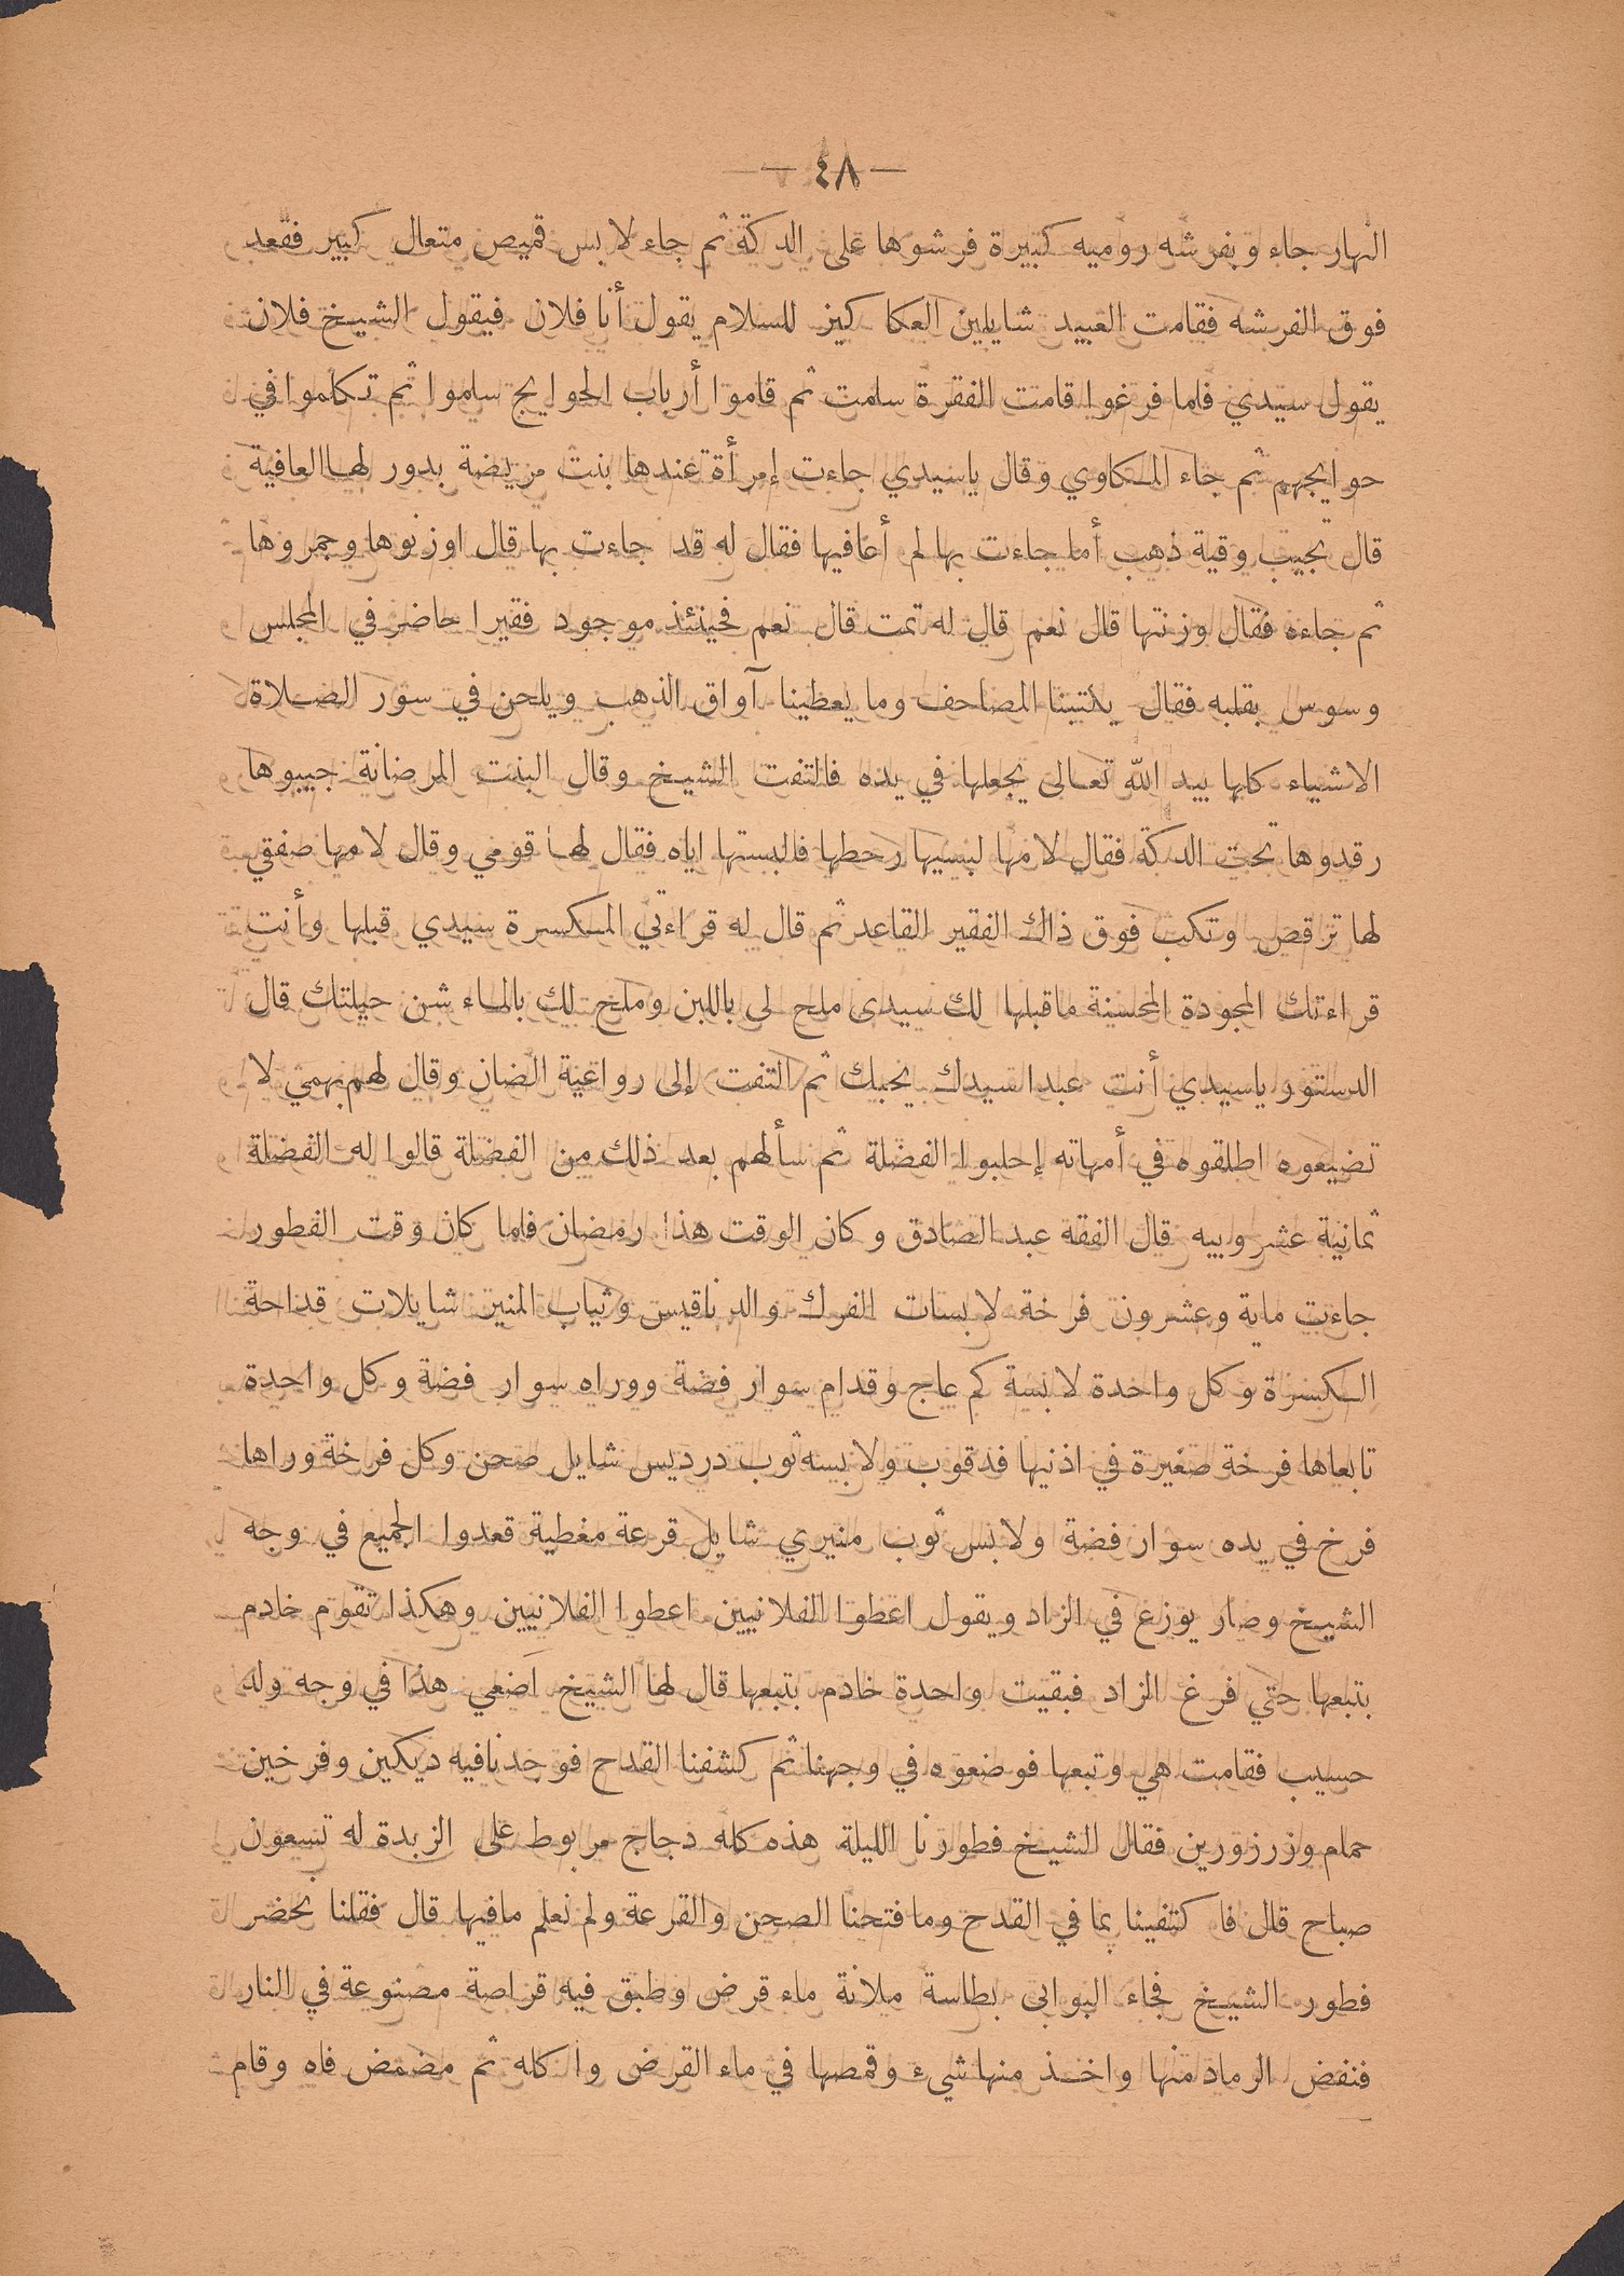 — ٤٨ —
النهار جاء وبفرشه روميه كبيرة فرشوها على الدكة ثم جاء لابس قميص متعال كبير فقعد
فوق الفرشه فقامت العبيد شايلين العكاكيز للسلام يقول أنا فلان فيقول الشيخ فلان
يقول سيدي فلما فرغوا قامت الفقرة سلمت ثم قاموا أرباب الحوايج سلموا ثم تكلموا في
حوايجهم ثم جاء المكاوي وقال ياسيدي جاءت إمرأة عندها بنت مريضة بدور لها العافية
قال تجيب وقية ذهب أما جاءت بها لم أعافيها فقال له قد جاءت بها قال اوزنوها وجمروها
ثم جاءه فقال وزنتها قال نعم قال له تمت قال نعم فحينئذ موجود فقيرا حاضر في المجلس
وسوس بقلبه فقال يكتبنا المصاحف وما يعطينا آواق الذهب ويلحن في سور الصلاة
الاشياء كلها بيد الله تعالى يجعلها في يده فالتفت الشيخ وقال البنت المرضانة جيبوها
رقدوها تحت الدكة فقال لامها لبسيها رحطها فالبستها اياه فقال لها قومي وقال لامها صفقي
لها ترقص وتكب فوق ذاك الفقير القاعد ثم قال له قراءتي المكسرة سيدي قبلها وأنت
قراءتك المجودة المحسنة ماقبلها لك سيدى ملح لى باللبن وملح لك بالماء شن حيلتك قال
الدستور ياسيدي أنت عبدا سيدك يحبك ثم التفت إلى رواعية الضان وقال لهم بهمي لا
تضيعوه اطلقوه في أمهاته إحلبوا الفضلة ثم سألهم بعد ذلك من الفضلة قالوا له الفضلة
ثمانية عشر ويبه قال الفقه عبد الصادق وكان الوقت هذا رمضان فلما كان وقت الفطور
جاءت ماية وعشرون فرخة لابسات الفرك والدناقيس وثياب المنير شايلات قداحة
الكسرة وكل واحدة لابسة كم عاج وقدام سوار فضة ووراه سوار فضة وكل واحدة
تابعاها فرخة صغيرة في اذنيها فدقوب ولابسه ثوب درديس شايل صحن وكل فرخة وراها
فرخ في يده سوار فضة ولابس ثوب منيري شايل قرعة مغطية قعدوا الجميع في وجه
الشيخ وصار يوزع في الزاد ويقول اعطوا الفلانيين اعطوا الفلانيين وهكذا تقوم خادم
بتبعها حتي فرغ الزاد فبقيت واحدة خادم بتبعها قال لها الشيخ اَضعي هذا في وجه ولد
حسيب فقامت هي وتبعها فوضعوه في وجهنا ثم كشفنا القدح فوجدنا فيه ديكين وفرخين
حمام وزرزورين فقال الشيخ فطورنا الليلة هذه كله دجاج مربوط على الزبدة له تسعون
صباح قال فاكتفينا بما في القدح وما فتحنا الصحن والقرعة ولم نعلم مافيها قال فقلنا نحضر
فطور الشيخ فجاء البوابى بطاسة ملانة ماء قرض وطبق فيه قراصة مصنوعة في النار
فنفض الرماد منها واخذ منها شيء وقمصها في ماء القرض واكله ثم مضمض فاه وقام